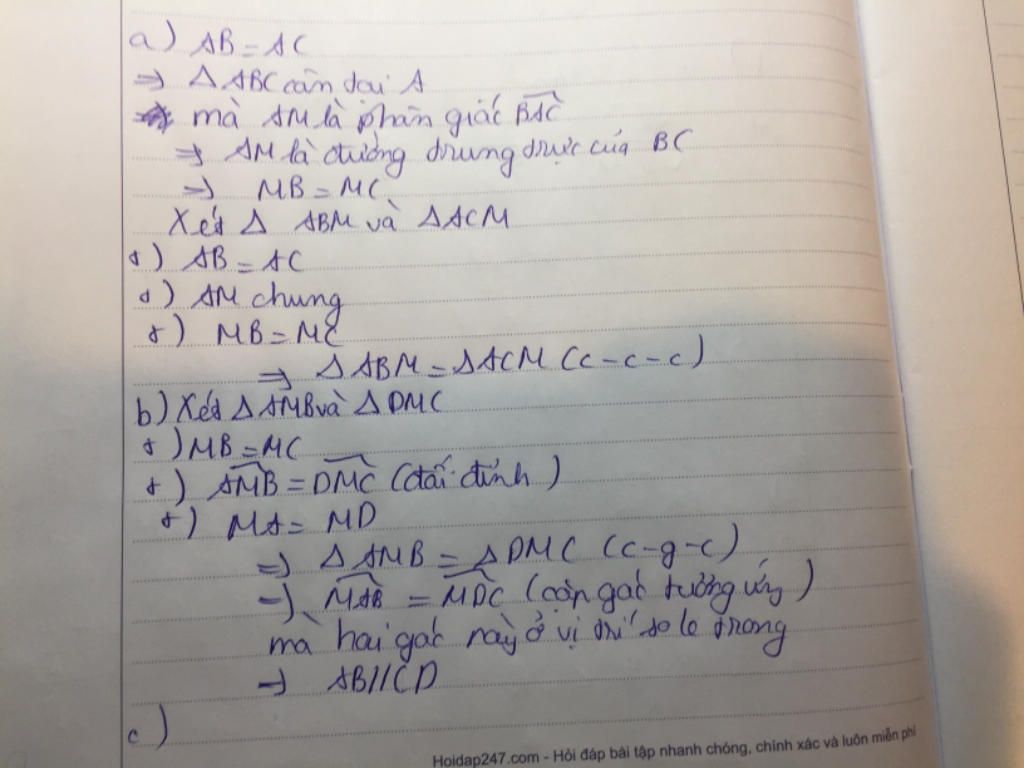 a) AB = AC
=> Δ ABC cân tại A
mà AM là phân giác BAC
=> AM là đường trung trực của BC
=> MB = MC
Xét Δ ABM và ΔACM
+) AB = AC
+) AM chung
+) MB = MC
=> Δ ABM = ΔACM (c-c-c)
b) Xét Δ AMB và Δ DMC
+) MB = MC
+) AMB = DMC (đối đỉnh)
+) MA = MD
=> Δ AMB = Δ DMC (c-g-c)
=> MAB = MDC (cặp góc tương ứng)
mà hai góc này ở vị trí so le trong
=> AB//CD
c)
Hoidap247.com - Hỏi đáp bài tập nhanh chóng, chính xác và luôn miễn phí